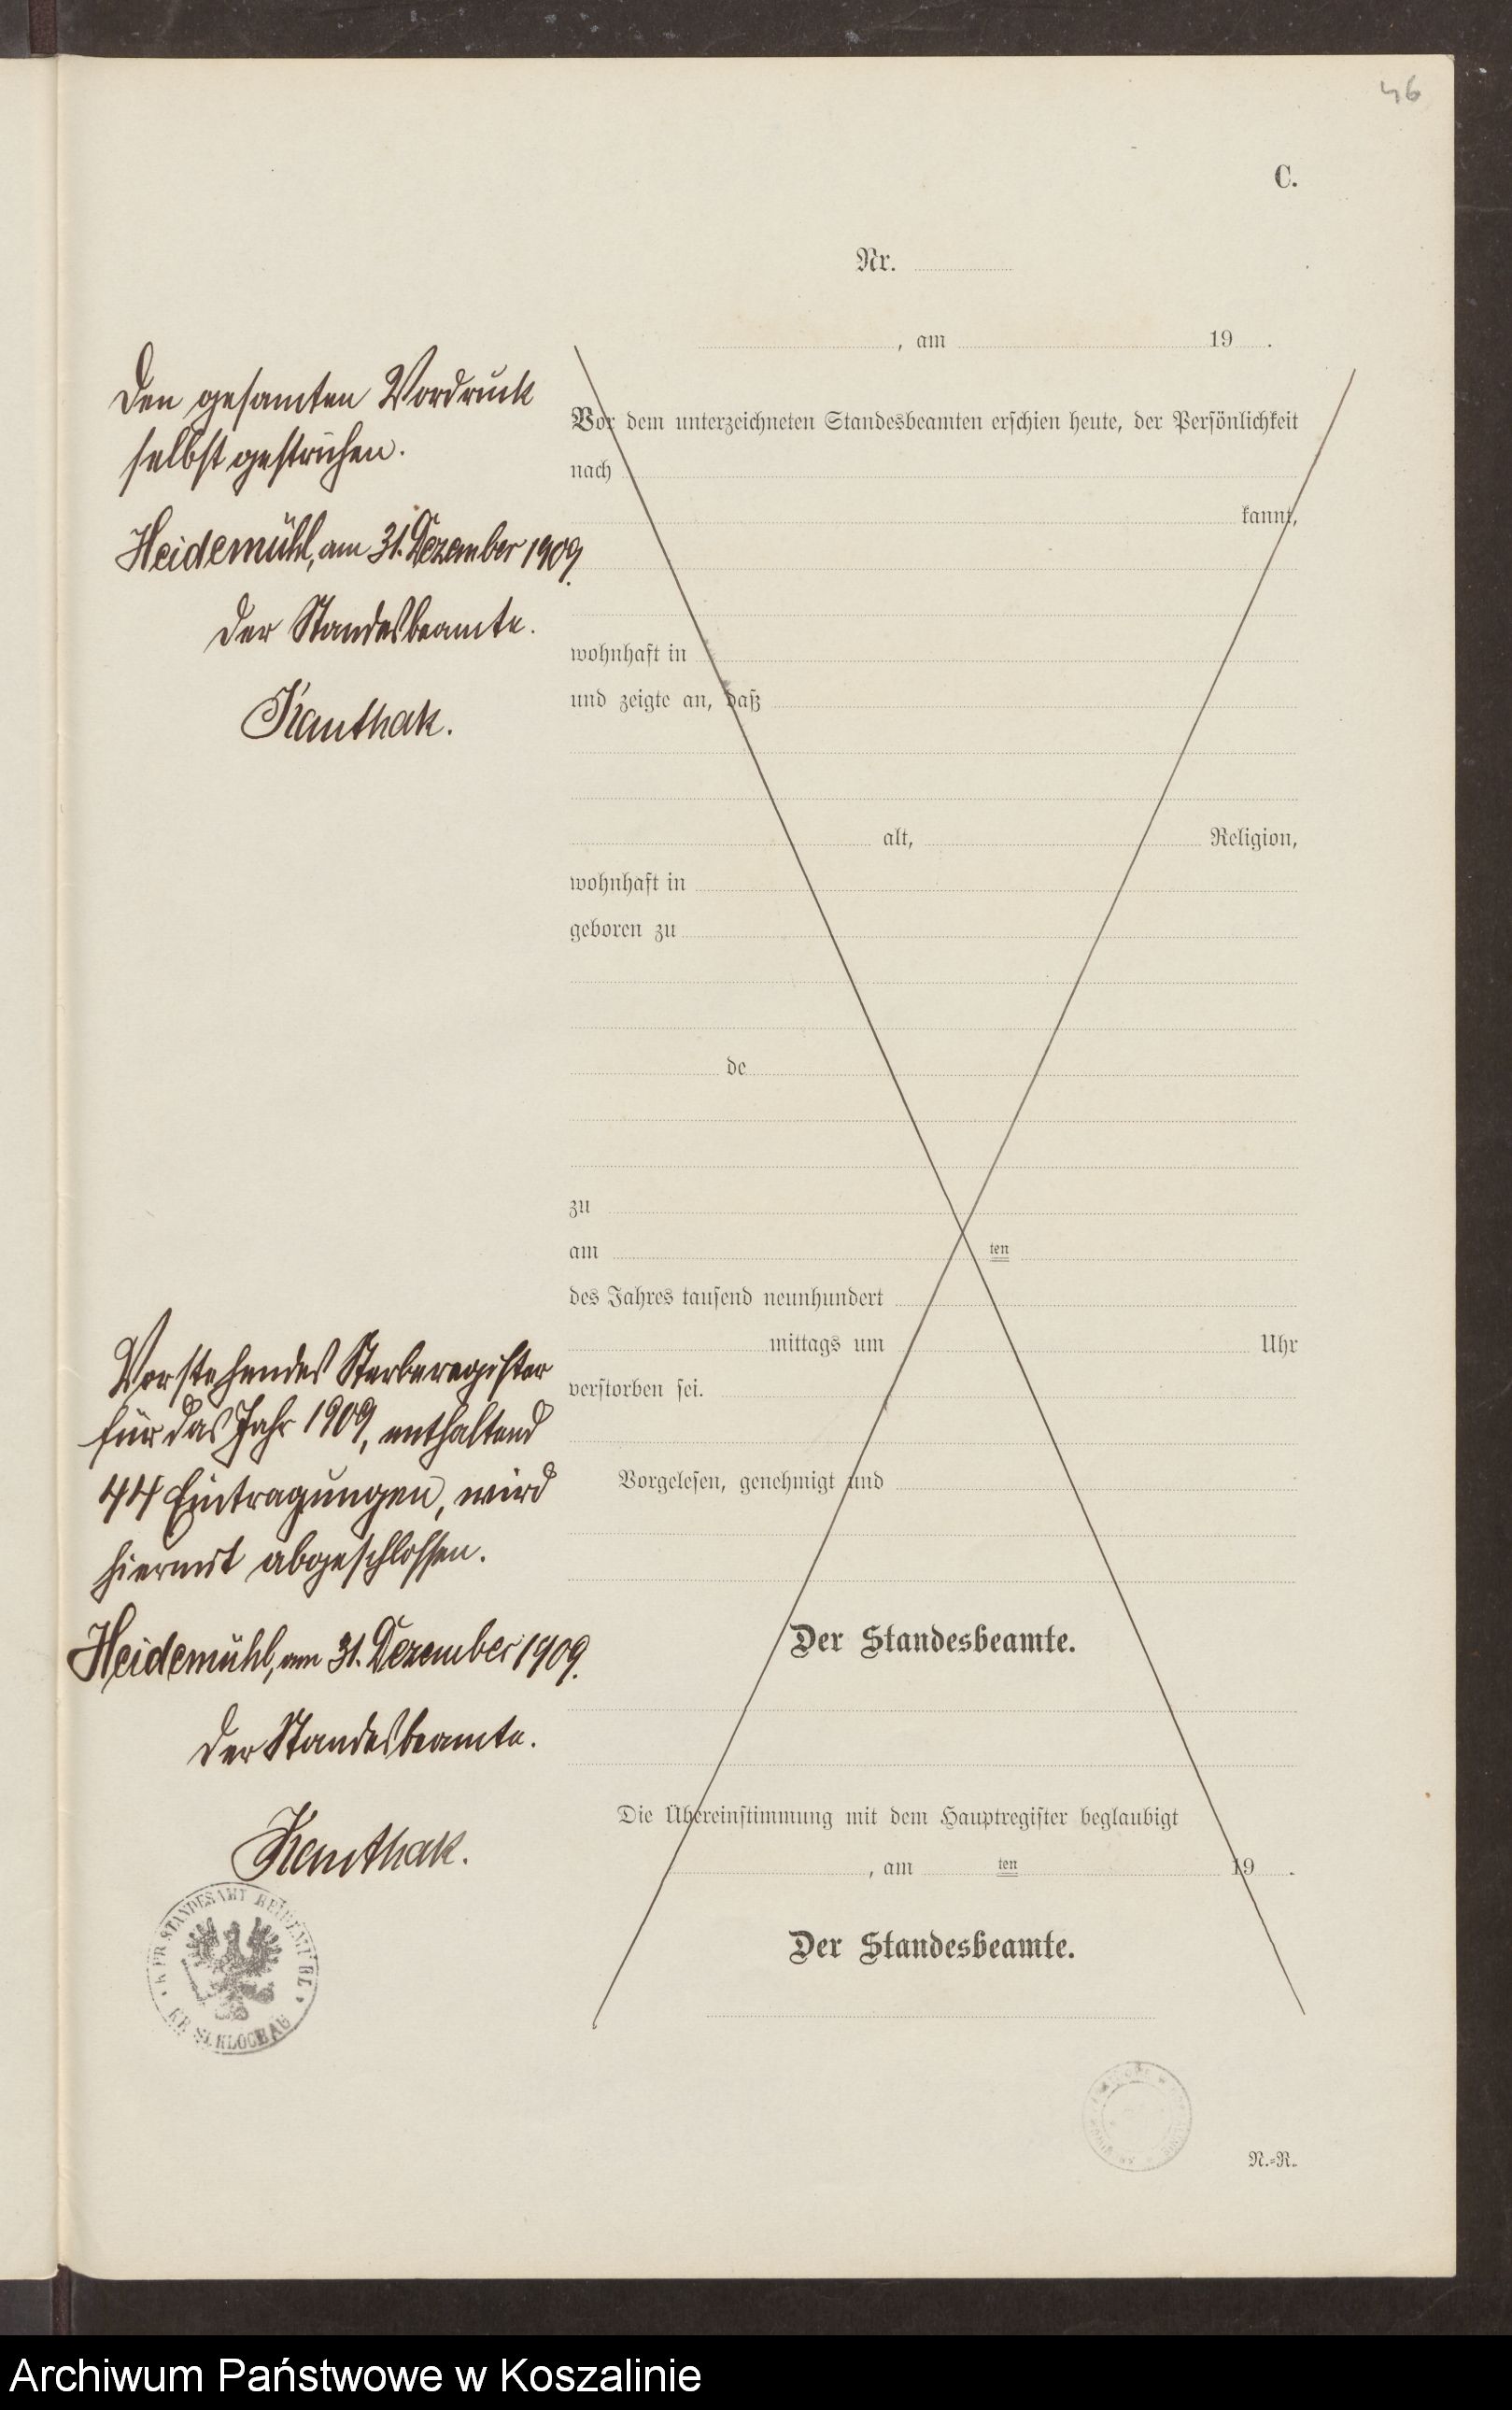 46
C.
Nr.
, am 19 .
Den gesamten Vordruck
selbst gestrichen.
Heidemühl, am 31. Dezember 1909.
Der Standesbeamte.
Kanthak.
Vor dem unterzeichneten Standesbeamten erschien heute, der Persönlichkeit
nach
kannt,
wohnhaft in
und zeigte an, daß
alt, Religion,
wohnhaft in
geboren zu
de
zu
am ten
des Jahres tausend neunhundert
mittags um Uhr
verstorben sei.
Vorgelesen, genehmigt und
Vorstehendes Sterberegister
für das Jahr 1909, enthaltend
44 Eintragungen, wird
hiermit abgeschlossen.
Heidemühl, am 31. Dezember 1909.
Der Standesbeamte.
Kanthak.
Der Standesbeamte.
Die Übereinstimmung mit dem Hauptregister beglaubigt
, am ten 19 .
Der Standesbeamte.
K. PR. STANDESAMT
KR. SCHLOCHAU
N.-R.
Archiwum Państwowe w Koszalinie